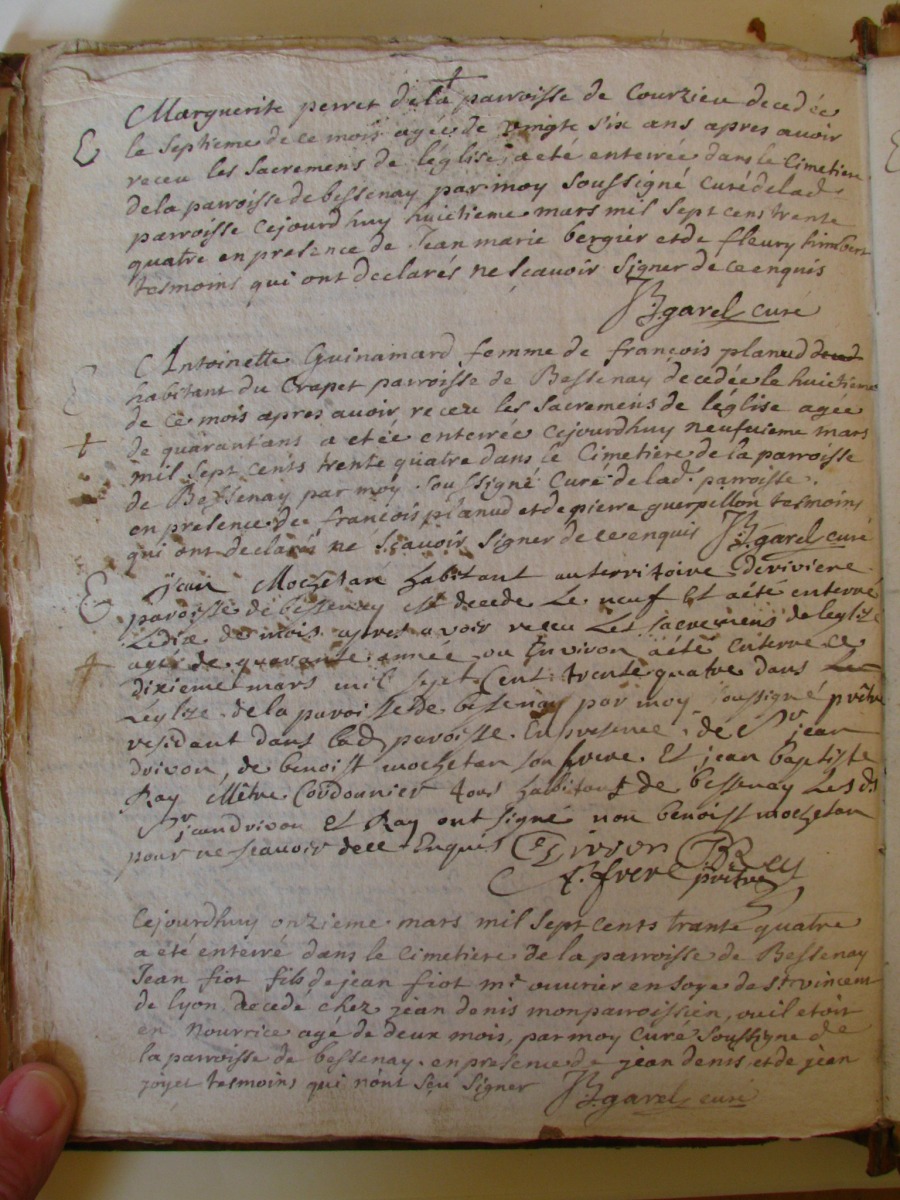 Marguerite perret de la parroisse de Courzieu decedée
le septieme de ce mois agée de vingte six ans apres avoir
receu les sacremens de léglise, a eté enterrée dans le cimetiere
de la parroisse de bessenay par moy soussigné curé de lad.
parroisse cejourdhuy huictieme mars mil sept cens trente
quatre en presence de Jean marie bergier et de fleury himbert
tesmoins qui ont declarés ne scavoir signer de ce enquis
garel curé
Antoinette Guinamard femme de françois planud
habitant du Crapet parroisse de Bessenay decedée le huictieme
de ce mois apres avoir receu les sacremens de léglise agée
de quarant'ans a etée enterrée cejourdhuy neufvieme mars
mil sept cents trente quatre dans le Cimetiere de la parroisse
de Bessenay par moy soussigné Curé de lad. parroisse
en presence de francois planud et de pierre guerpillon tesmoins
qui ont declaré ne scavoir signer de ce enquis garel curé
jean Mochetan habitant au territoire de riviere
paroisse de bessenay est decede Le neuf Et aété enterré
Ledix du mois apres avoir receu Les sacremens de leglize
agé de quarante année ou Environ aété enterré ce
dixieme mars mil sept Cent trente quatre dans
Léglize de la paroisse de bessenay par moy soussigné prêtre
residant dans lad. paroisse. En presence de Sr jean
drivon, de benoist mochetan son frere. Et jean baptiste
Ray Mêtre Cordounier tous habitant de bessenay Les ds
Sr jean drivon Et Ray ont signé non benoist mochetan
pour ne scavoir de ce Enquis Drivon
prêtre
Cejourdhuy onzieme mars mil sept cents trante quatre
a été enterré dans le cimetiere de la parroisse de Bessenay
Jean fiot fils de jean fiot mr ouvrier en soye de st vincent
de lyon decedé chez jean denis mon parroissien, ou il etoit
en Nourrice age de deux mois, par moy Curé soussigne de
la parroisse de bessenay en presence de jean denis et de jean
joyet tesmoins qui n'ont sçu signer garel curé